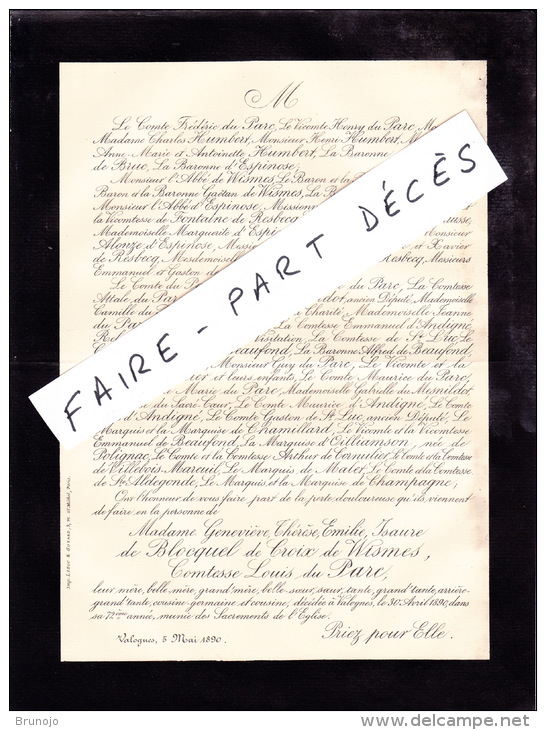 M
Le Comte Frédéric du Parc, Le Vicomte Henry du Parc,
Madame Charles Humbert, Monsieur Henri Humbert,
Anne-Marie et Antoinette Humbert, La Baronne
de Bruc, La Baronne d'Espinose,
Monsieur l'Abbé de Wismes, Le Baron et la
Baron et la Baronne Gaëtan de Wismes, La
Monsieur l'Abbé d'Espinose, Missionn
la Vicomtesse de Fontaine de Resbecq
Mademoiselle Marguerite d'Espi Monsieur
Alonze d'Espinose, Messi et Xavier
de Resbecq, Mesdemoiselles Resbecq, Messieurs
Emmanuel et Gaston de
Le Comte du Pa du Parc, La Comtesse
Attale du Par ancien Député, Mademoiselle
Camille du Charité, Mademoiselle Jeanne
du Pa La Comtesse Emmanuel d'Andigné,
Visitation, La Comtesse de St Luc, Le
Beaufond, La Baronne Alfred de Beaufond,
Monsieur Guy du Parc, Le Vicomte et la
et leurs enfants, Le Comte Maurice du Parc,
Marie du Parc, Mademoiselle Gabrielle du Mesnildot,
du Sacré-Cœur, Le Comte Maurice d'Andigné, Le Comte
d'Andigné, Le Comte Gaston de St Luc, ancien Député, Le
Marquis et la Marquise de Chamillard, Le Vicomte et la Vicomtesse
Emmanuel de Beaufond, La Marquise d'Oilliamson, née de
Polignac, Le Comte et la Comtesse Arthur de Cornulier, Le Comte et la Comtesse
de Villebois-Mareuil, Le Marquis de Malet, Le Comte et la Comtesse
de Ste Aldegonde, Le Marquis et la Marquise de Champagne,
Ont l'honneur de vous faire part de la perte douloureuse qu'ils viennent
de faire en la personne de
Madame Geneviève, Thérèse, Emilie, Isaure
de Blocquel de Croix de Wismes,
Comtesse Louis du Parc,
leur mère, belle-mère, grand'mère, belle-sœur, sœur, tante, grand'tante, arrière-
grand'tante, cousine-germaine et cousine, décédée à Valognes, le 30 Avril 1890, dans
sa 72ème année, munie des Sacrements de l'Eglise.
Priez pour Elle.
Valognes, 5 Mai 1890.
FAIRE - PART DÉCÈS
Brunojo
delcampe.net